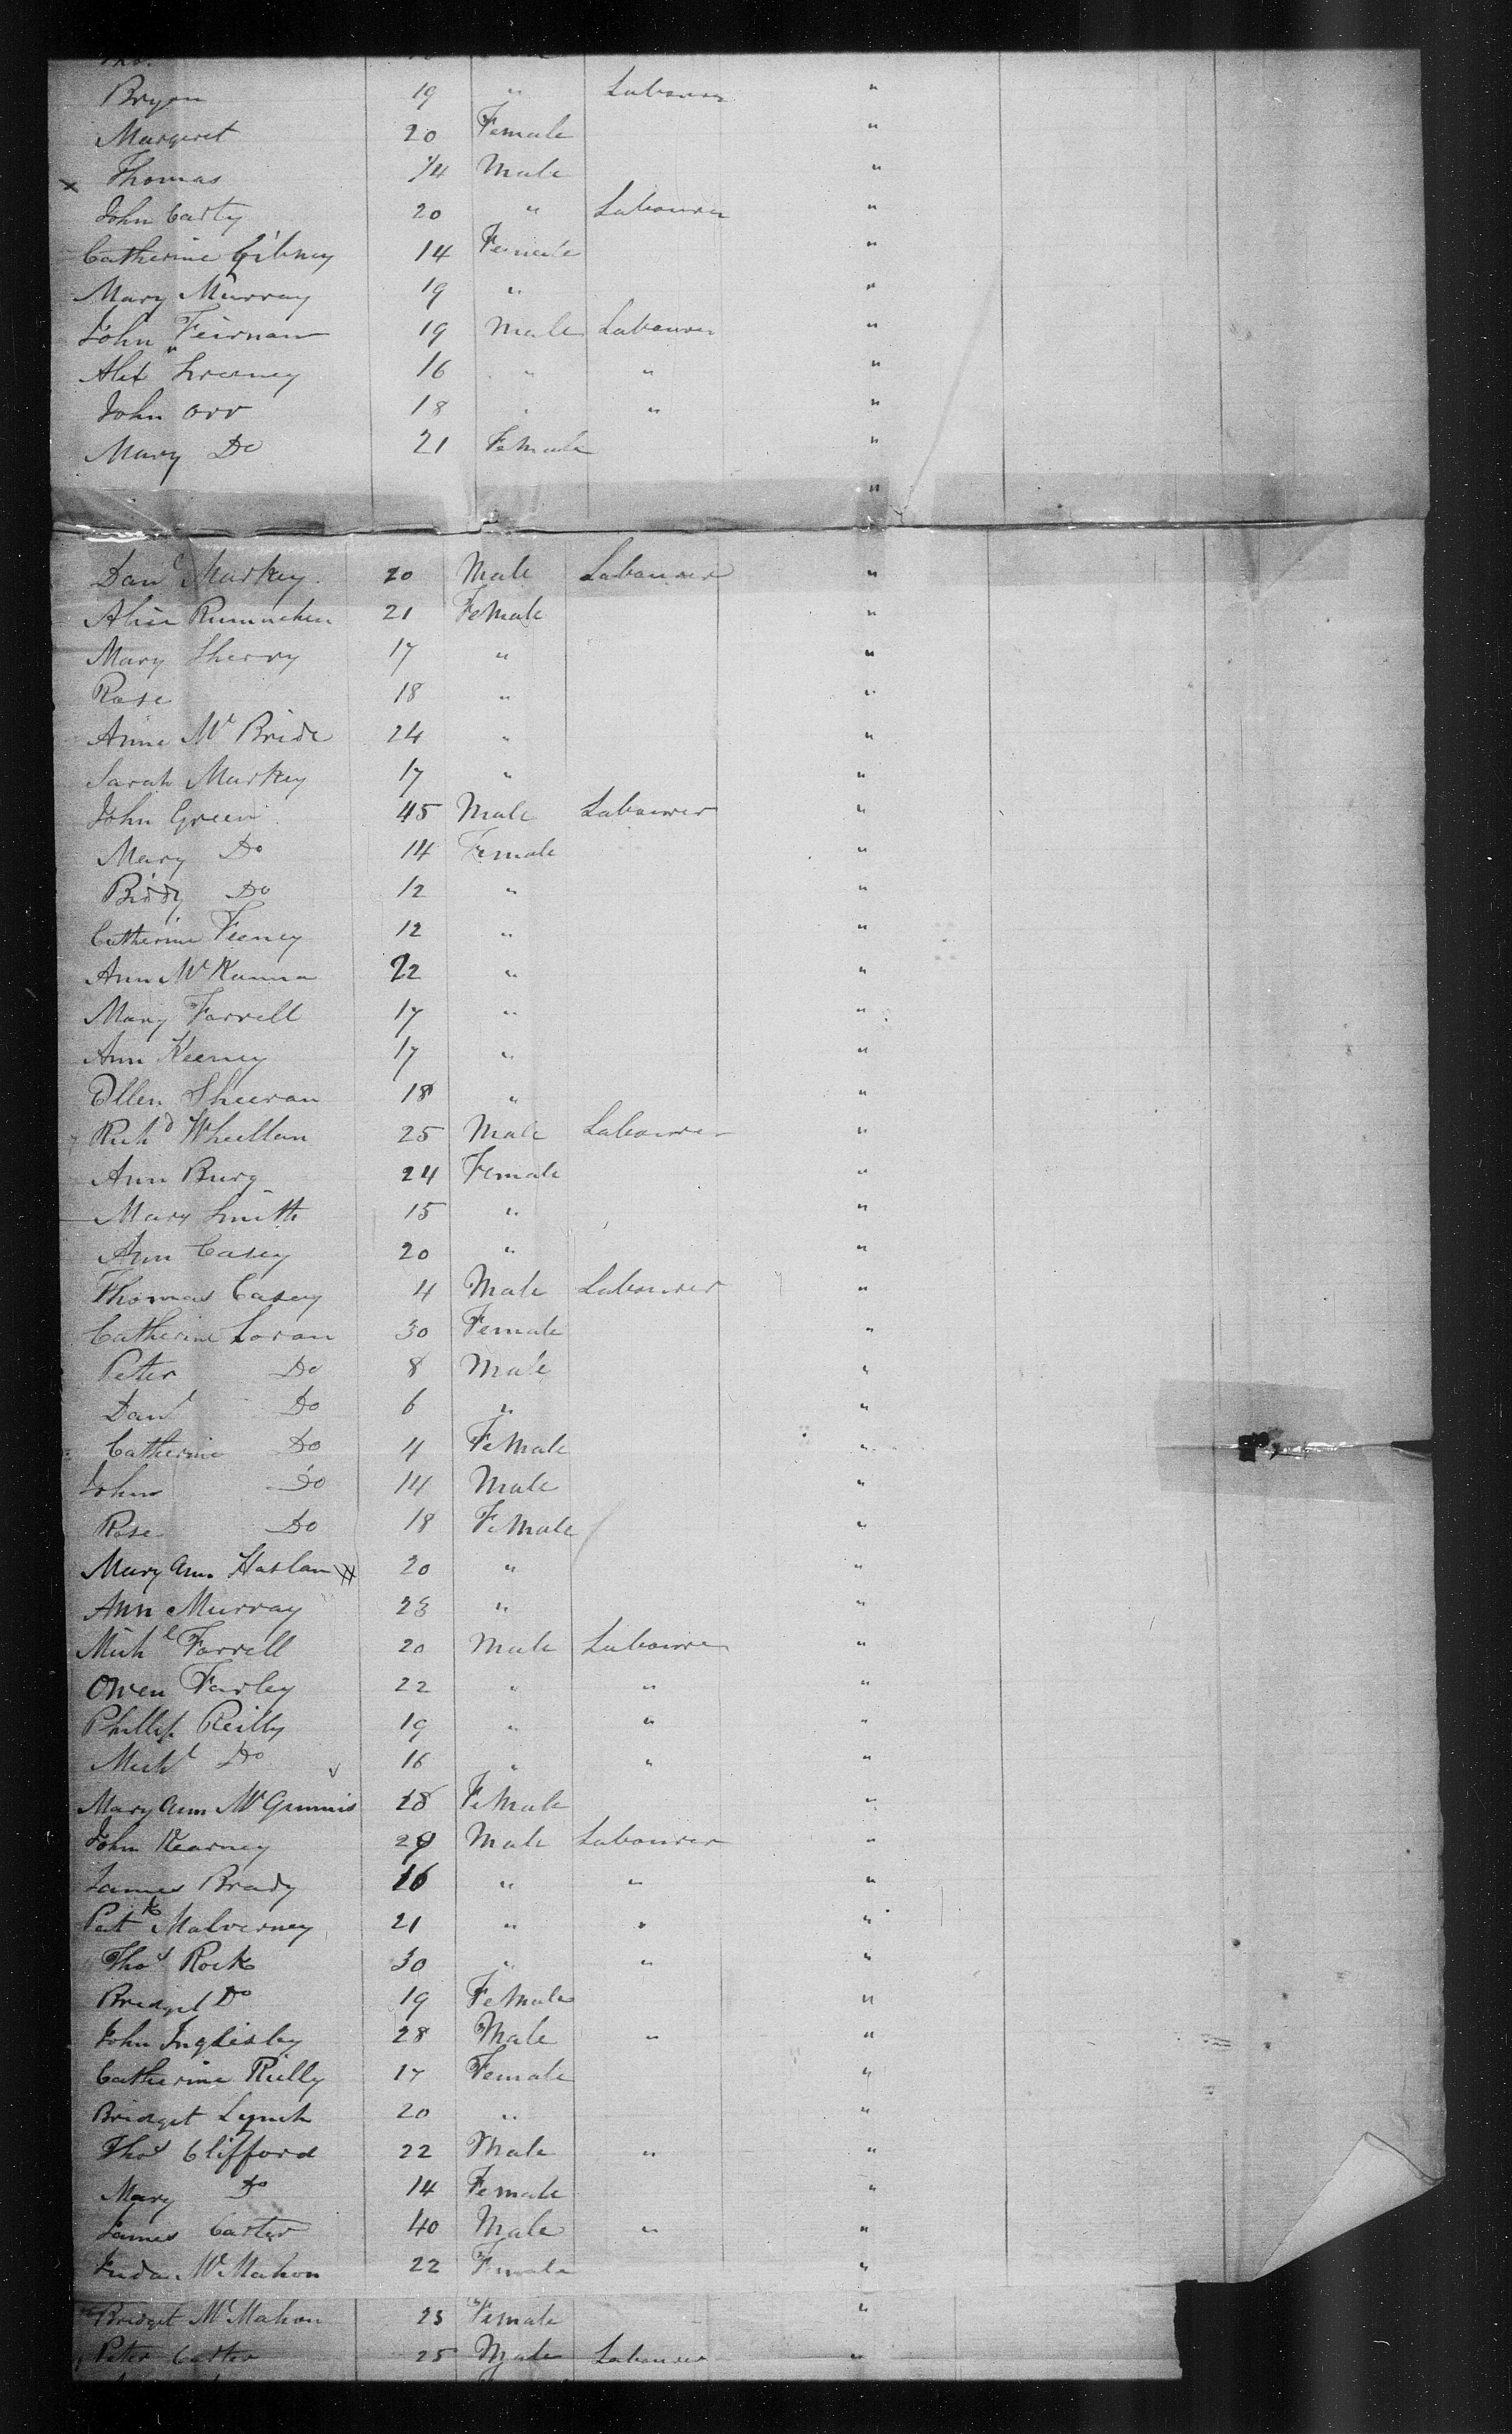 Tho.
Bryan 19 " Labourer "
Margaret 20 Female "
x Thomas 1/4 Male "
John Carty 20 " Labourer "
Catherine Gibney 14 Female "
Mary Murray 19 " "
John Feirnan 19 Male Labourer "
Alex Sweeney 16 " " "
John Orr 18 " " "
Mary Do 21 Female "
"
Danl Markey 20 Male Labourer "
Alice 21 Female "
Mary Sherry 17 " "
Rose 18 " "
Anne Mc Bride 24 " "
Sarah Markey 17 " "
John Green 45 Male Labourer "
Mary Do 14 Female "
Biddy Do 12 " "
Catherine Feeney 12 " "
Ann Mc Kanna 22 " "
Mary Farrell 17 " "
Ann Keeney 17 " "
Ellen Sheeran 18 " "
Richd Wheellan 25 Male Labourer "
Ann Burg 24 Female "
Mary Smith 15 " "
Ann Casey 20 " "
Thomas Casey 4 Male Labourer "
Catherine Loran 30 Female "
Peter Do 8 Male "
Danl Do 6 " "
Catherine Do 4 Female "
John Do 14 Male "
Rose Do 18 Female "
Mary Ann Haslam 20 " "
Ann Murray 23 " "
Michl Farrell 20 Male Labourer "
Owen Farley 22 " " "
Phillip Reilly 19 " " "
Michl Do 16 " " "
Mary Ann McGinnis 18 Female "
John Kearney 29 Male Labourer "
James Brady 16 " " "
Patk Malverney 21 " " "
Thos Rock 30 " " "
Bridget Do 19 Female "
John Inglisby 28 Male " "
Catherine Rielly 17 Female "
Bridget Lynch 20 " "
Thos Clifford 22 Male " "
Mary Do 14 Female "
James Carter 40 Male " "
Juda McMahon 22 Female "
Bridget McMahon 23 Female "
Peter Carter 25 Male Labourer "